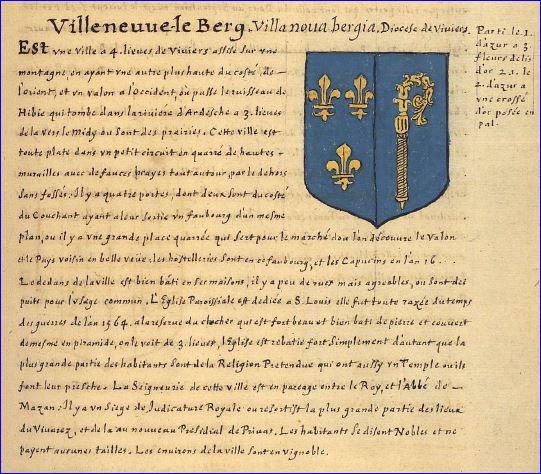 Villeneuve-le Berg. Villa noua bergia. Diocese de Viviers.
Est vne Ville a 4. lieues de Viviers assise sur vne
montagne, en ayant vne autre plus haute du costé, de
l'orient, et vn valon a l'occident, où passe le ruisseau de
Hibie qui tombe dans la riviére d'Ardesche a 3. lieues
de la vers le Midy ou sont des prairies. Cette ville est
toute plate dans vn petit circuit en quarré de hautes
murailles avec de fauces brayes tout autour, par le dehors
sans fossés. Il y a quatre portes, dont deux sont du costé
du Couchant ayant a leur sortie vn faubourg d'un mesme
plan, ou il y a vne grande place quarrée qui sert pour le marché d'où l'on découvre le Valon
et le Pays voisin en belle veüe: les hostelleries sont en ce faubourg, et les Capucins en l'an 16..
Le dedans de la ville est bien bâti en ses maisons, il y a peu de rües mais agreables, ou sont des
puits pour l'vsage commun. L'Eglise Paroissiale est dediée a S. Louis elle fut toute razée du temps
des guerres de l'an 1564. a la reserve du clocher qui est fort beau et bien bati de pierre et couvert
de mesme en piramide, on le voit de 3. lieues, l'Eglise est rebatie fort simplement d'autant que la
plus grande partie des habitants sont de la Religion Pretendue qui ont aussy vn Temple ou ils
font leur presche. La Seigneurie de cette ville est en pareage entre le Roy, et l'Abbé de
Mazan. Il y a vn Siege de Judicature Royale ou resortist la plus grande partie des lieux
du Vivarez, et de la au nouveau Présidial de Privas. Les habitants se disent Nobles et ne
payent aucunes tailles. Les environs de la ville sont en vignoble.
Parti le 1.
d'azur a 3.
fleurs de lis
d'or 2. 1. le
2. d'azur a
vne crosse
d'or posée en
pal.